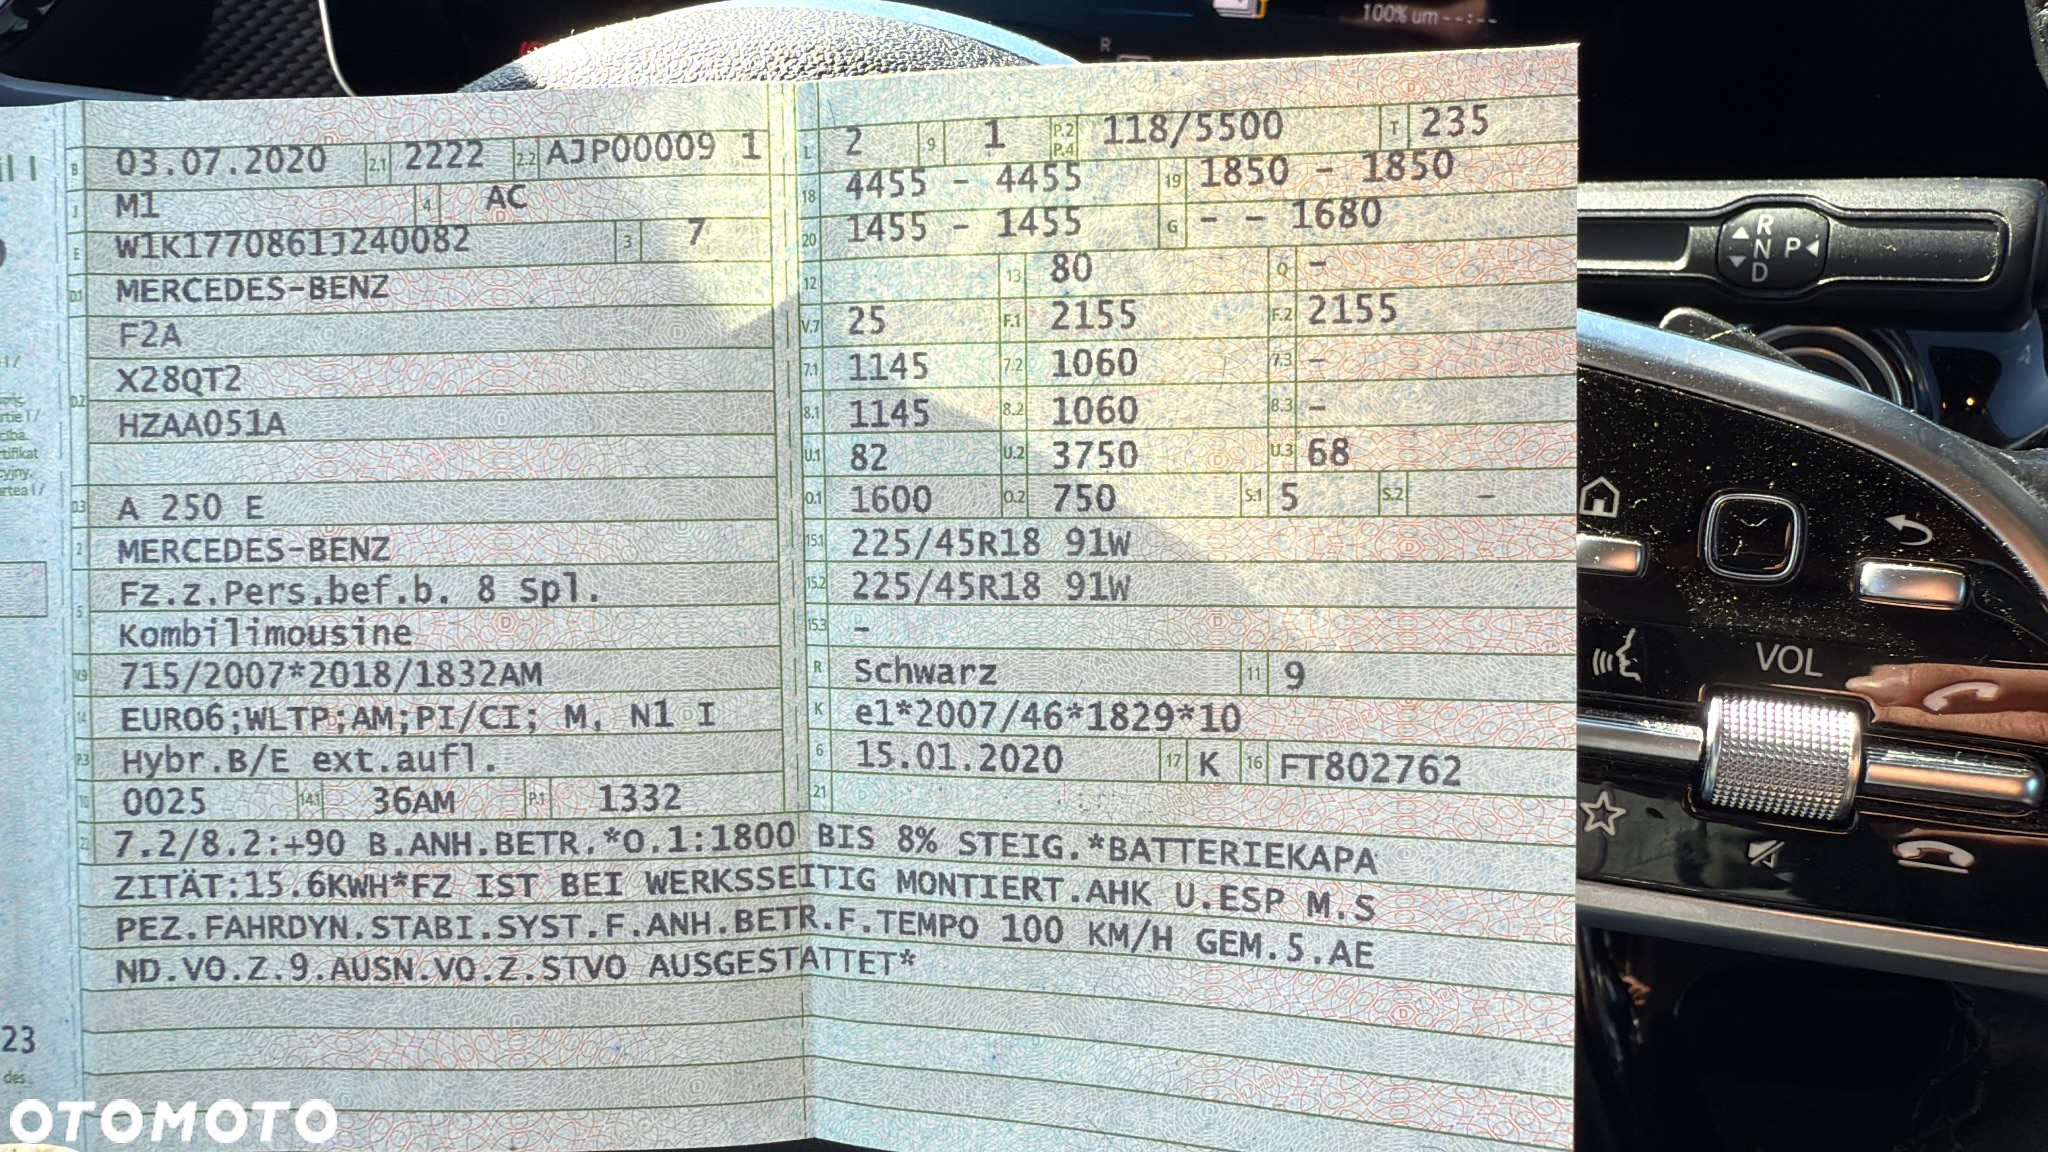 100% um --:--
R
B 03.07.2020 2.1 2222 2.2 AJP00009 1
J M1 4 AC
E W1K1770861J240082 3 7
D.1 MERCEDES-BENZ
F2A
D.2 X28QT2
HZAA051A
D.3 A 250 E
2 MERCEDES-BENZ
Fz.z.Pers.bef.b. 8 Spl.
5 Kombilimousine
V.9 715/2007*2018/1832AM
14 EURO6;WLTP;AM;PI/CI; M, N1 I
P.3 Hybr.B/E ext.aufl.
10 0025 14.1 36AM P.1 1332
L 2 9 1 P.2 P.4 118/5500 T 235
18 4455 - 4455 19 1850 - 1850
20 1455 - 1455 G - - 1680
12 13 80 Q -
V.7 25 F.1 2155 F.2 2155
7.1 1145 7.2 1060 7.3 -
8.1 1145 8.2 1060 8.3 -
U.1 82 U.2 3750 U.3 68
O.1 1600 O.2 750 S.1 5 S.2 -
15.1 225/45R18 91W
15.2 225/45R18 91W
15.3 -
R Schwarz 11 9
K e1*2007/46*1829*10
6 15.01.2020 17 K 16 FT802762
21
22 7.2/8.2:+90 B.ANH.BETR.*O.1:1800 BIS 8% STEIG.*BATTERIEKAPA
ZITÄT:15.6KWH*FZ IST BEI WERKSSEITIG MONTIERT.AHK U.ESP M.S
PEZ.FAHRDYN.STABI.SYST.F.ANH.BETR.F.TEMPO 100 KM/H GEM.5.AE
ND.VO.Z.9.AUSN.VO.Z.STVO AUSGESTATTET*
23
des
R
N P
D
VOL
OTOMOTO